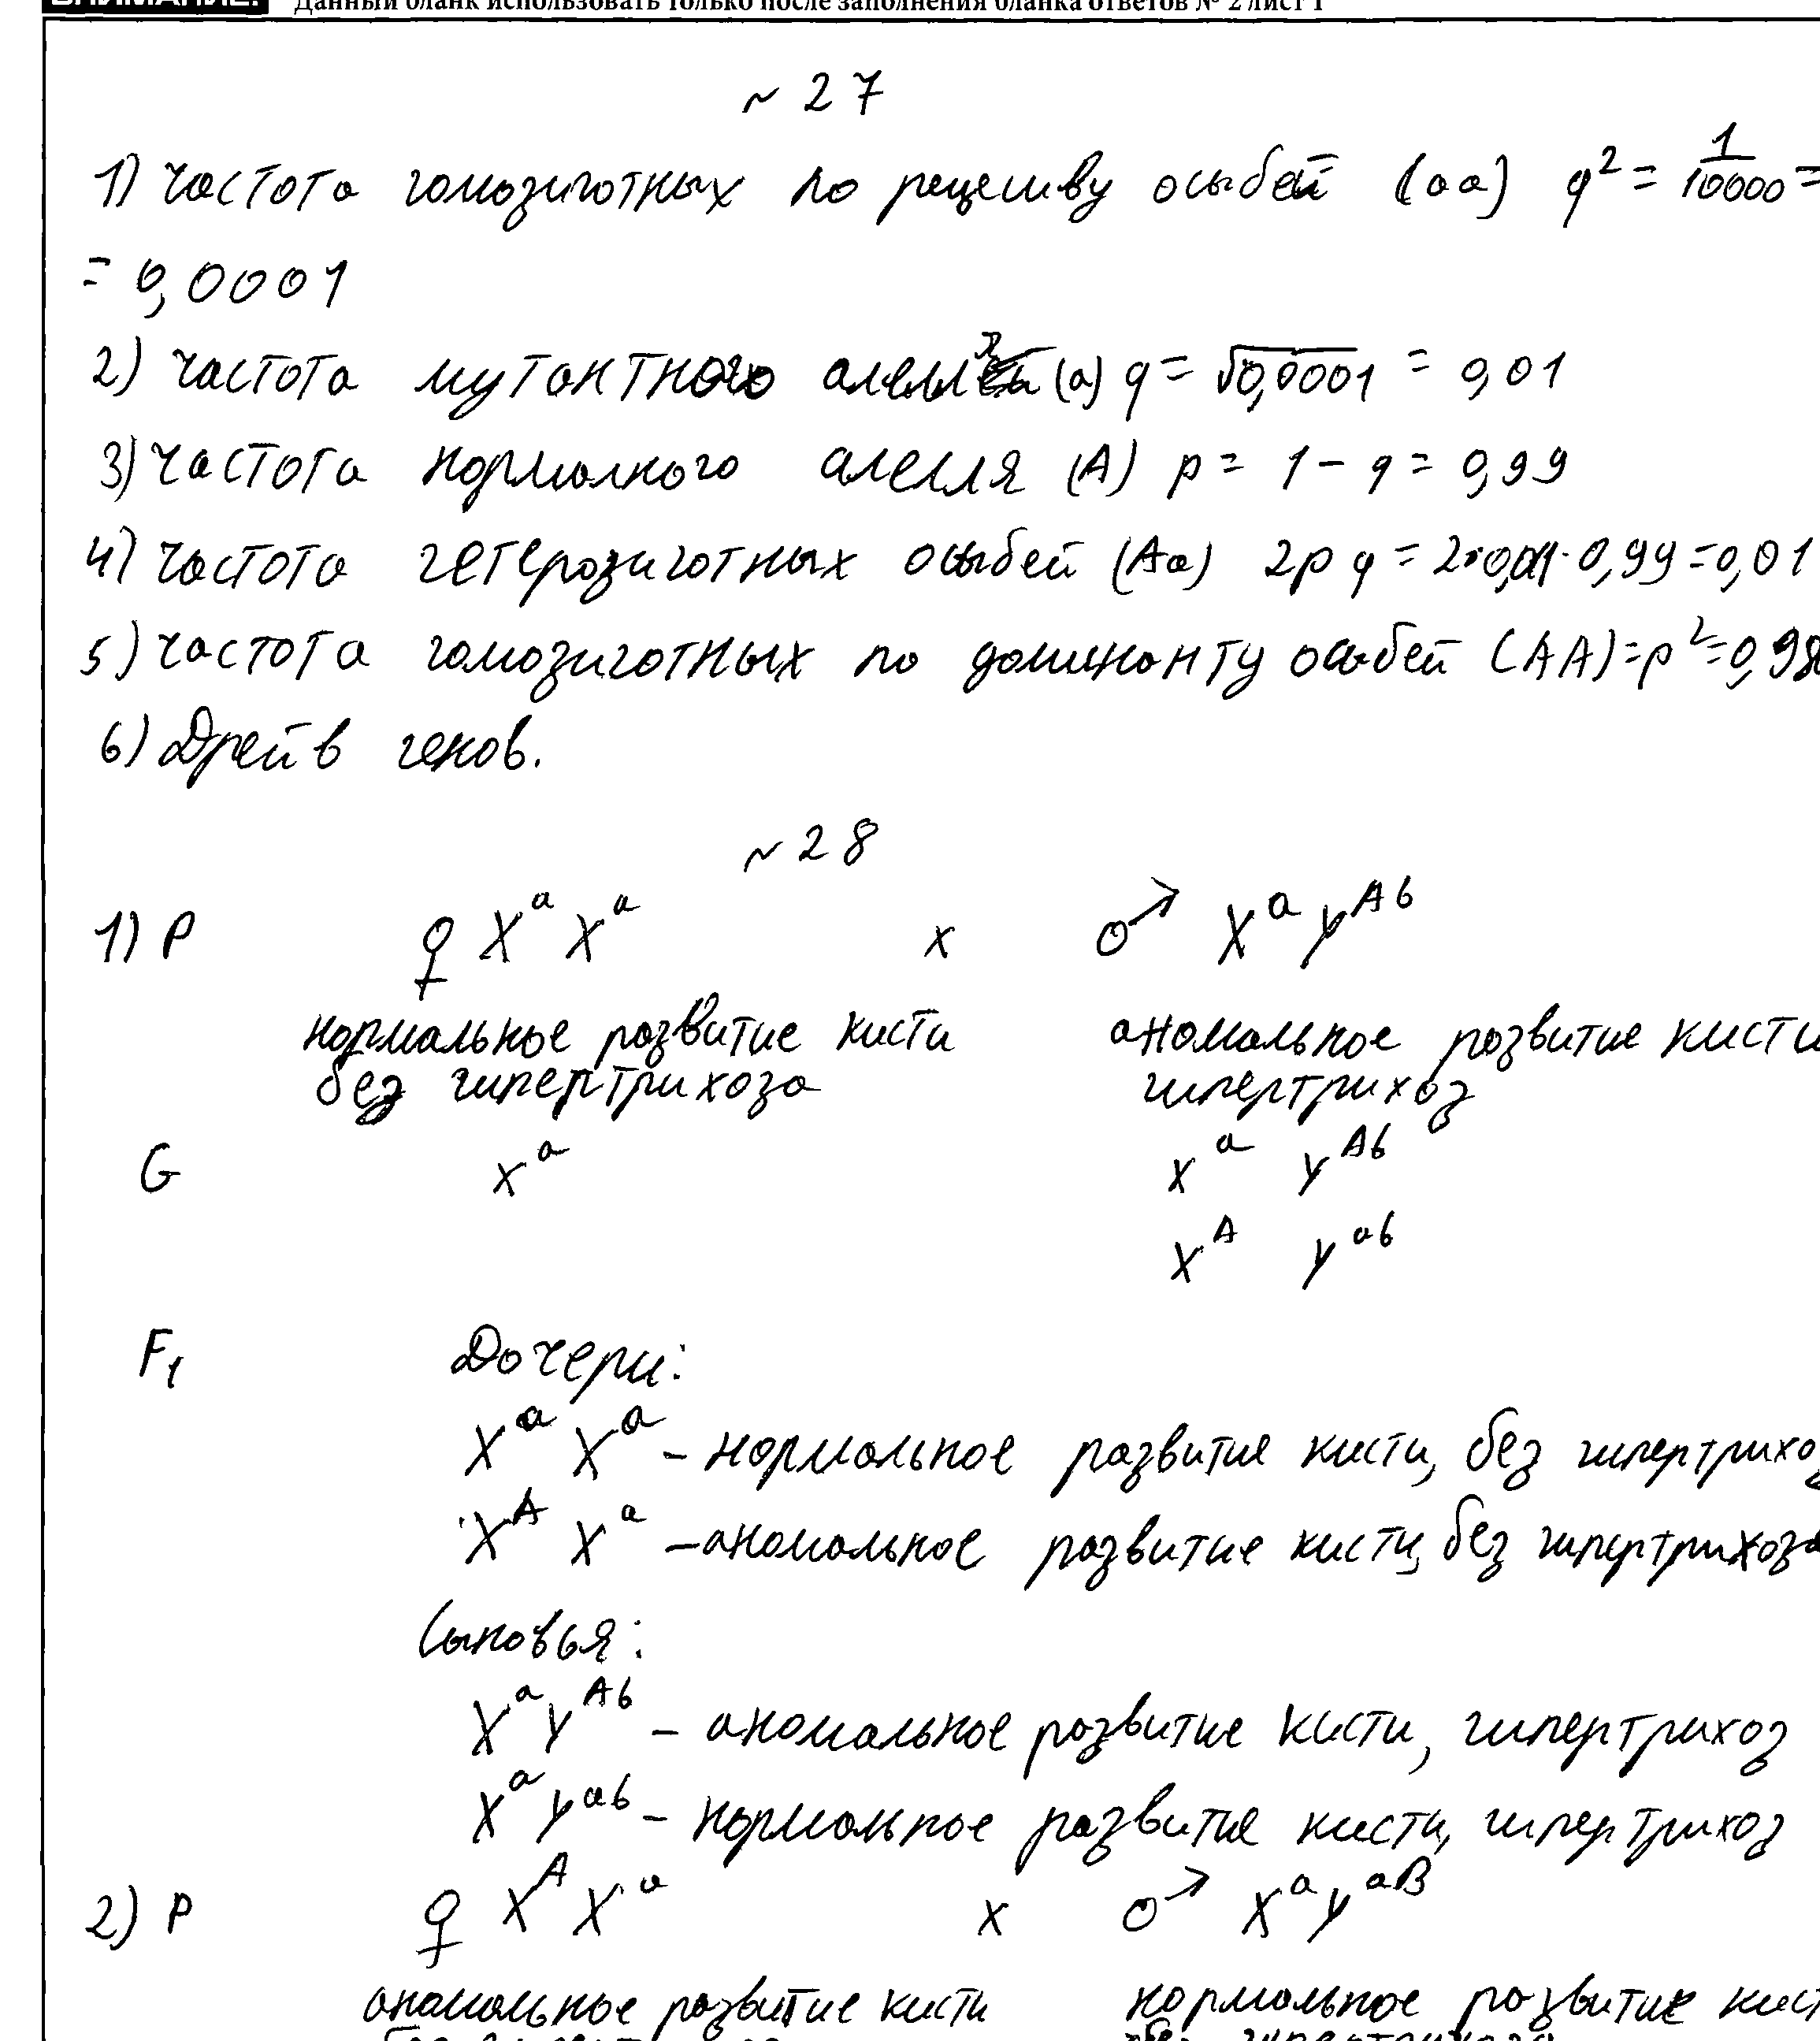 ВНИМАНИЕ! Данный бланк использовать только после заполнения бланка ответов № 2 лист 1
~ 27
1) частота гомозиготных по рецесиву особей (aa) q² = 1/10000 =
= 0,0001
2) частота мутантного алелля (a) q = √0,0001 = 0,01
3) частота нормалного алелля (A) p = 1 - q = 0,99
4) частота гетерозиготных особей (Aa) 2pq = 2·0,01·0,99=0,01
5) частота гомозиготных по доминанту особей (AA)=p²=0,98
6) Дрейв генов.
~ 28
1) P ♀ XᵃXᵃ x ♂ XᵃYᴬᵇ
нормальное развитие кисти аномальное развитие кисти
без гипертрихоза гипертрихоз
G Xᵃ Xᵃ Yᴬᵇ
Xᴬ Yᵃᵇ
F₁ Дочери:
XᵃXᵃ – нормольное развитие кисти, без гипертрихоз
XᴬXᵃ – аномальное развитие кисти, без гипертрихоза
Сыновья:
XᵃYᴬᵇ – аномальное развитие кисти, гипертрихоз
XᵃYᵃᵇ – нормольное развитие кисти, гипертрихоз
2) P ♀ XᴬXᵃ x ♂ XᵃYᵃᴮ
аномольное развитие кисти нормольное развитие кист